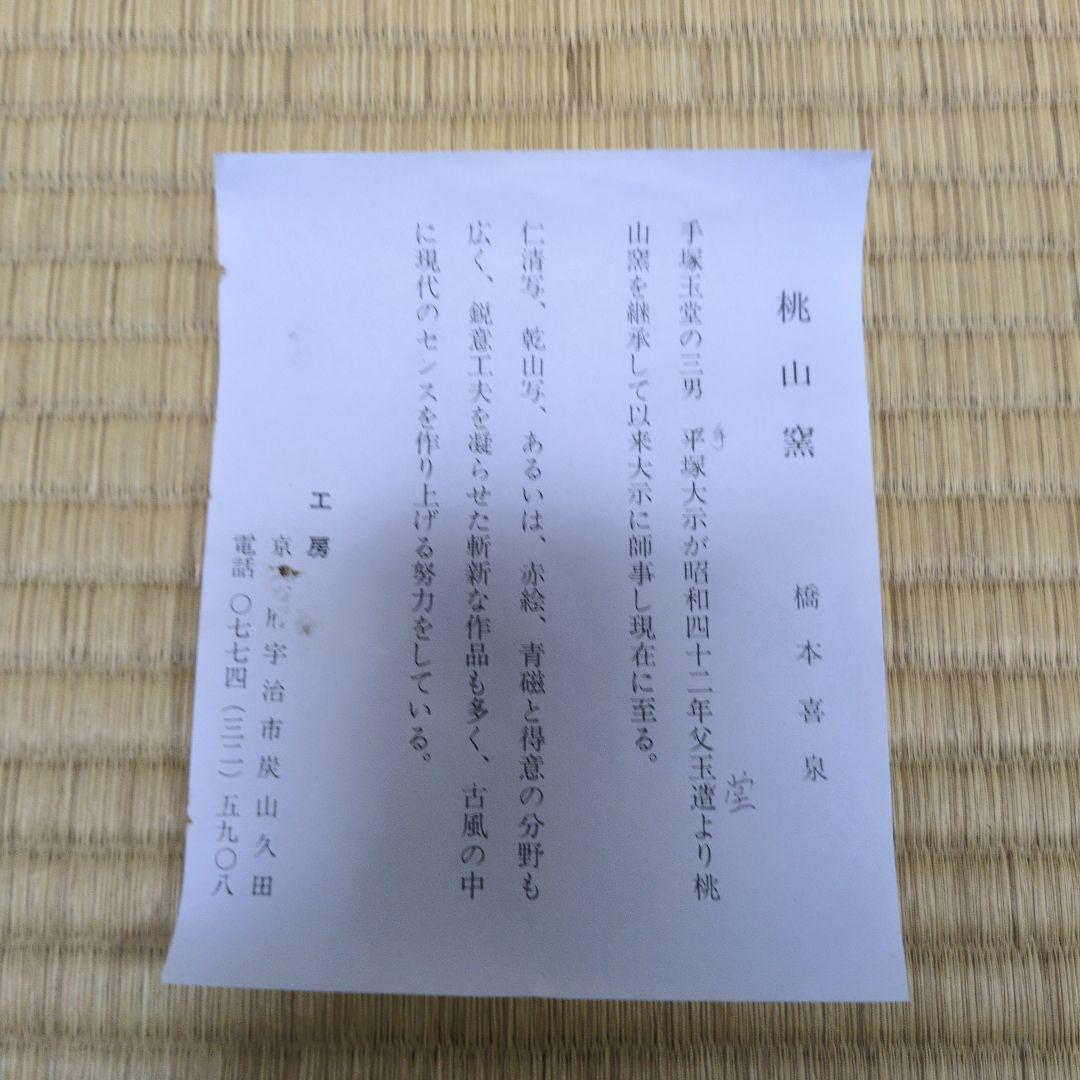 桃山窯　橋本喜泉
手塚玉堂の三男　平塚大示が昭和四十二年父玉造より桃
手
堂
山窯を継承して以来大示に師事し現在に至る。
仁清写、乾山写、あるいは、赤絵、青磁と得意の分野も
広く、鋭意工夫を凝らせた斬新な作品も多く、古風の中
に現代のセンスを作り上げる努力をしている。
工房
京 府宇治市炭山久田
電話 〇七七四(三二)五九〇八